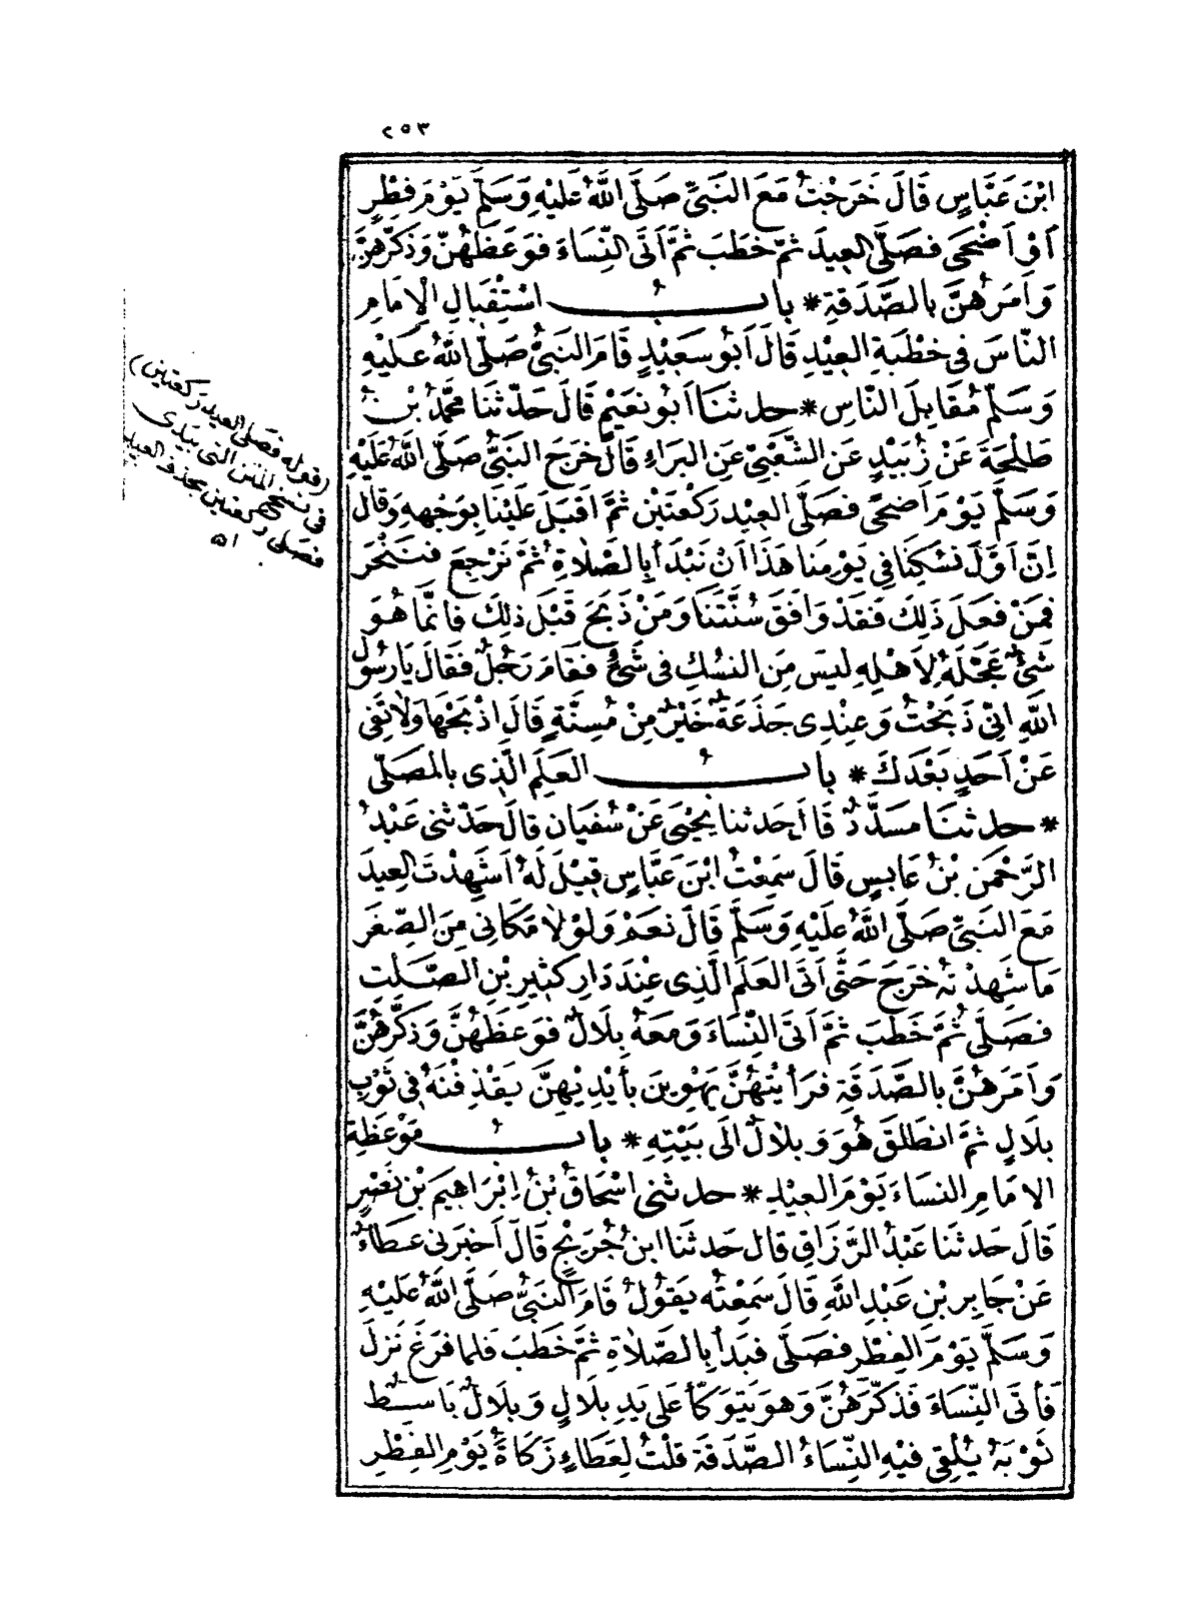 ٢٥٣
ابْنَ عَبَّاسٍ قَالَ خَرَجْتُ مَعَ النَّبِيِّ صَلَّى اللَّهُ عَلَيْهِ وَسَلَّمَ يَوْمَ فِطْرٍ
أَوْ أَضْحَى فَصَلَّى العِيدَ ثُمَّ خَطَبَ ثُمَّ أَتَى النِّسَاءَ فَوَعَظَهُنَّ وَذَكَّرَهُنَّ
وَأَمَرَهُنَّ بِالصَّدَقَةِ * بابُ اسْتِقْبَالِ الْإِمَامِ
النَّاسَ فِي خُطْبَةِ العِيْدِ قَالَ أَبُو سَعِيْدٍ قَامَ النَّبِيُّ صَلَّى اللَّهُ عَلَيْهِ
وَسَلَّمَ مُقَابِلَ النَّاسِ * حدثَنَا أَبُو نَعِيْمٍ قَالَ حَدَّثَنَا مُحَمَّدُ بْنُ
طَلْحَةَ عَنْ زُبَيْدٍ عَنِ الشَّعْبِيِّ عَنِ البَرَاءِ قَالَ خَرَجَ النَّبِيُّ صَلَّى اللَّهُ عَلَيْهِ
وَسَلَّمَ يَوْمَ أَضْحًى فَصَلَّى العِيْدَ رَكْعَتَيْنِ ثُمَّ أَقْبَلَ عَلَيْنَا بِوَجْهِهِ وَقَالَ
إِنَّ أَوَّلَ نُسُكِنَا فِي يَوْمِنَا هَذَا أَنْ نَبْدَأَ بِالصَّلَاةِ ثُمَّ نَرْجِعَ فَنَنْحَرَ
فَمَنْ فَعَلَ ذَلِكَ فَقَدْ وَافَقَ سُنَّتَنَا وَمَنْ ذَبَحَ قَبْلَ ذَلِكَ فَإِنَّمَا هُوَ
شَئٌ عَجَّلَهُ لِأَهْلِهِ لَيْسَ مِنَ النُّسُكِ فِي شَئٍ فَقَامَ رَجُلٌ فَقَالَ يَا رَسُولَ
اللَّهِ إِنِّي ذَبَحْتُ وَعِنْدِى جَذَعَةٌ خَيْرٌ مِنْ مُسِنَّةٍ قَالَ اذْبَحْهَا وَلَا تَفِى
عَنْ أَحَدٍ بَعْدَكَ * بابُ العَلَمِ الَّذِى بِالْمُصَلَّى
* حدثنَا مُسَدَّدٌ قَالَ حَدثنا يَحْيَى عَنْ سُفْيَانَ قَالَ حَدَّثَنِى عَبْدُ
الرَّحْمَنِ بْنُ عَابِسٍ قَالَ سَمِعْتُ ابْنَ عَبَّاسٍ قِيْلَ لَهُ أَشَهِدْتَ العِيدَ
مَعَ النَّبِيِّ صَلَّى اللَّهُ عَلَيْهِ وَسَلَّمَ قَالَ نَعَمْ وَلَوْلَا مَكَانِى مِنَ الصِّغَرِ
مَا شَهِدْتُهُ خَرَجَ حَتَّى أَتَى العَلَمَ الَّذِى عِنْدَ دَارِ كَثِيرِ بْنِ الصَّلْتِ
فَصَلَّى ثُمَّ خَطَبَ ثُمَّ أَتَى النِّسَاءَ وَمَعَهُ بِلَالٌ فَوَعَظَهُنَّ وَذَكَّرَهُنَّ
وَأَمَرَهُنَّ بِالصَّدَقَةِ فَرَأَيْتُهُنَّ يَهْوِينَ بِأَيْدِيْهِنَّ يَقْذِفْنَهُ فِي ثَوْبِ
بِلَالٍ ثُمَّ انْطَلَقَ هُوَ وَبِلَالٌ إِلَى بَيْتِهِ * بابُ مَوْعِظَةِ
الإِمَامِ النِّسَاءَ يَوْمَ العِيْدِ * حدثنى إِسْحَاقُ بْنُ إِبْرَاهِيمَ بْنِ نَصْرٍ
قَالَ حَدثَنَا عَبْدُ الرَّزَّاقِ قَالَ حَدثَنَا ابْنُ جُرَيْجٍ قَالَ أَخْبَرَنِى عَطَاءٌ
عَنْ جَابِرِ بْنِ عَبْدِ اللَّهِ قَالَ سَمِعْتُهُ يَقُولُ قَامَ النَّبِيُّ صَلَّى اللَّهُ عَلَيْهِ
وَسَلَّمَ يَوْمَ الفِطْرِ فَصَلَّى فَبَدَأَ بِالصَّلَاةِ ثُمَّ خَطَبَ فَلَمَّا فَرَغَ نَزَلَ
فَأَتَى النِّسَاءَ فَذَكَّرَهُنَّ وَهُوَ يَتَوَكَّأُ عَلَى يَدِ بِلَالٍ وَبِلَالٌ بَاسِطٌ
ثَوْبَهُ يُلْقِى فِيْهِ النِّسَاءُ الصَّدَقَةَ قُلْتُ لِعَطَاءٍ زَكَاةُ يَوْمِ الفِطْرِ
(قوله فصلى العيد ركعتين)
فى نسخ المتن التى بيدى
فصلى ركعتين بحذف العيد
اه